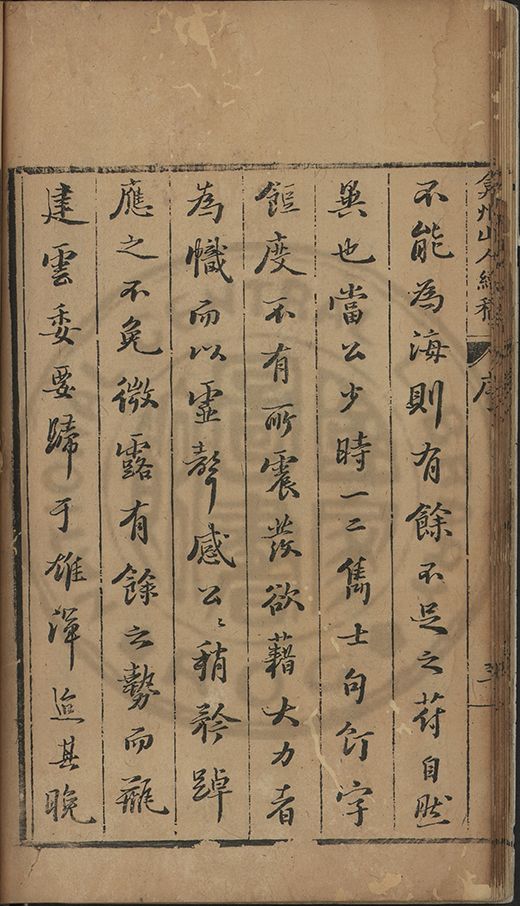 弇州山人續稿 序
不能為海則有餘不足之葑自然
異也當公少時一二雋士句飣字
餖度不有所震發欲藉大力者
為幟而以虛聲感公〻稍矜踔
應之不免微露有餘之勢而龍
建雲委要歸于雄渾迨其晚